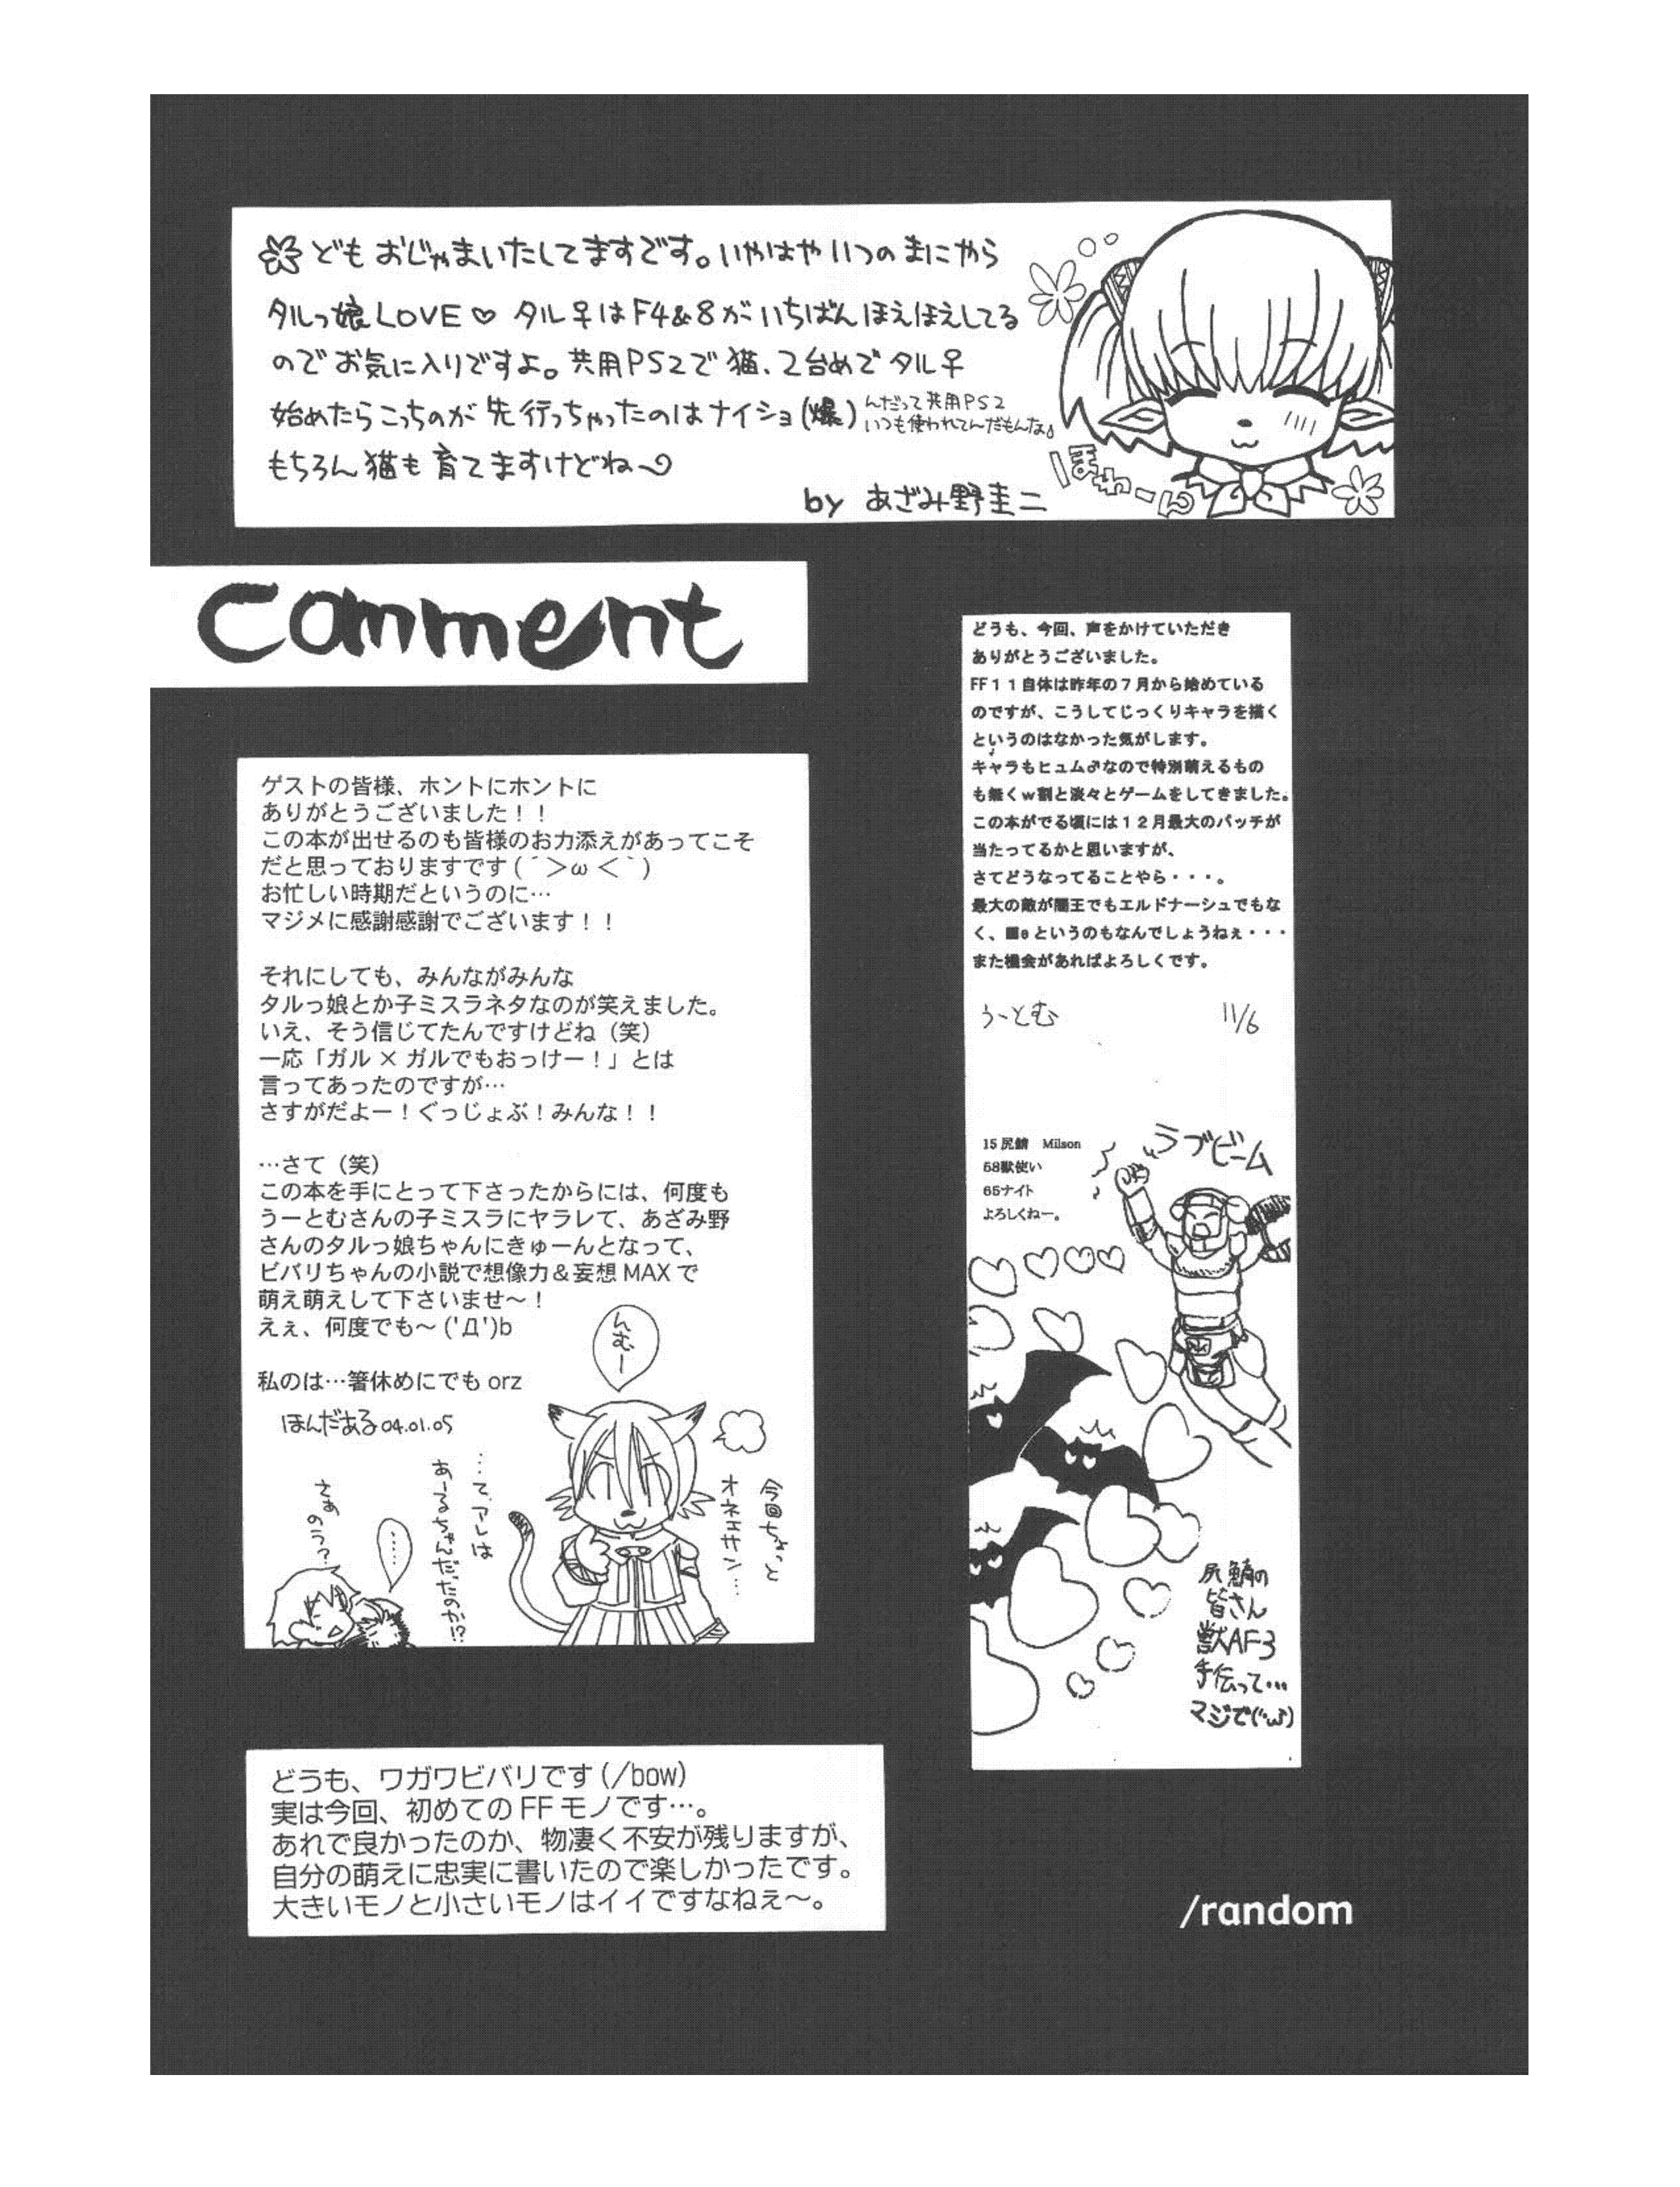 どもおじゃまいたしてますです。いやはやいつのまにやら
タルっ娘LOVE♡ タル♀はF4&8がいちばんほえほえしてる
のでお気に入りですよ。共用PS2で猫、2台めでタル♀
始めたらこっちのが先行っちゃったのはナイショ(爆)
んだって共用PS2
いつも使われてんだもんなぁ
もちろん猫も育てますけどね〜
by あざみ野圭二
ほわーん
Comment
どうも、今回、声をかけていただき
ありがとうございました。
FF11自体は昨年の7月から始めている
のですが、こうしてじっくりキャラを描く
というのはなかった気がします。
キャラもヒュム♂なので特別萌えるもの
も無くw割と淡々とゲームをしてきました。
この本がでる頃には12月最大のパッチが
当たってるかと思いますが、
さてどうなってることやら・・・。
最大の敵が闇王でもエルドナーシュでもな
く、■eというのもなんでしょうねぇ・・・
また機会があればよろしくです。
うーとむ 11/6
15尻鯖 Milson
58獣使い
65ナイト
よろしくねー。
ラブビーム
尻鯖の
皆さん
獣AF3
手伝って…
マジで(´・ω・`)
ゲストの皆様、ホントにホントに
ありがとうございました！！
この本が出せるのも皆様のお力添えがあってこそ
だと思っておりますです(´＞ω＜｀)
お忙しい時期だというのに…
マジメに感謝感謝でございます！！
それにしても、みんながみんな
タルっ娘とか子ミスラネタなのが笑えました。
いえ、そう信じてたんですけどね（笑）
一応「ガル×ガルでもおっけー！」とは
言ってあったのですが…
さすがだよー！ぐっじょぶ！みんな！！
…さて（笑）
この本を手にとって下さったからには、何度も
うーとむさんの子ミスラにヤラレて、あざみ野
さんのタルっ娘ちゃんにきゅーんとなって、
ビバリちゃんの小説で想像力＆妄想MAXで
萌え萌えして下さいませ〜！
えぇ、何度でも〜('Д')b
私のは…箸休めにでもorz
ほんだある04.01.05
んむー
今回ちょっと
オネエサン…
…て、アレは
あーるちゃんだったのか!?
……
さぁ
のう？
どうも、ワガワビバリです(/bow)
実は今回、初めてのFFモノです…。
あれで良かったのか、物凄く不安が残りますが、
自分の萌えに忠実に書いたので楽しかったです。
大きいモノと小さいモノはイイですなねぇ〜。
/random